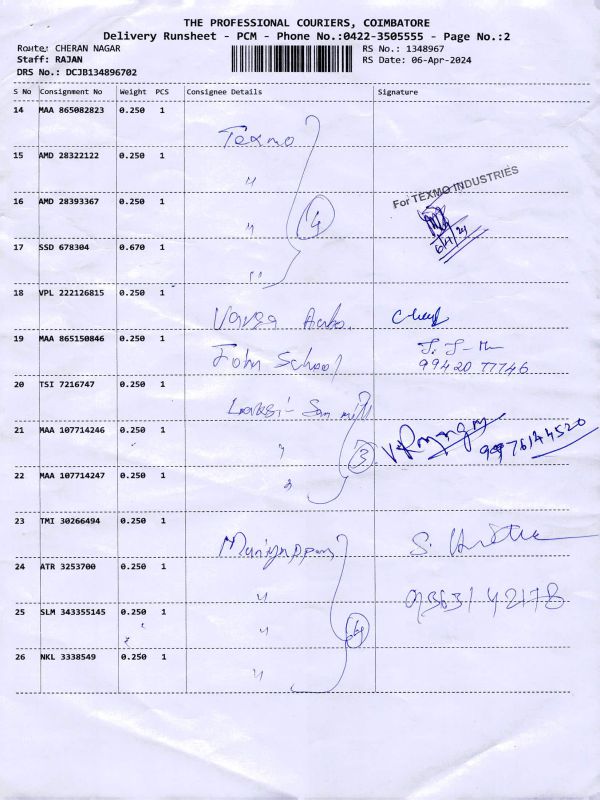 THE PROFESSIONAL COURIERS, COIMBATORE
Delivery Runsheet - PCM - Phone No.:0422-3505555 - Page No.:2
Route: CHERAN NAGAR
RS No.: 1348967
Staff: RAJAN
RS Date: 06-Apr-2024
DRS No.: DCJB134896702
S No Consignment No Weight PCS Consignee Details Signature
14 MAA 865082823 0.250 1 Texmo
15 AMD 28322122 0.250 1 "
For TEXMO INDUSTRIES
16 AMD 28393367 0.250 1 " 4
6/4/24
17 SSD 678304 0.670 1 "
18 VPL 222126815 0.250 1
19 MAA 865150846 0.250 1 John School
99420 77746
20 TSI 7216747 0.250 1
21 MAA 107714246 0.250 1 " 3
9976144520
22 MAA 107714247 0.250 1 "
23 TMI 30266494 0.250 1
24 ATR 3253700 0.250 1 "
93631 42178
25 SLM 343355145 0.250 1 "
26 NKL 3338549 0.250 1 "